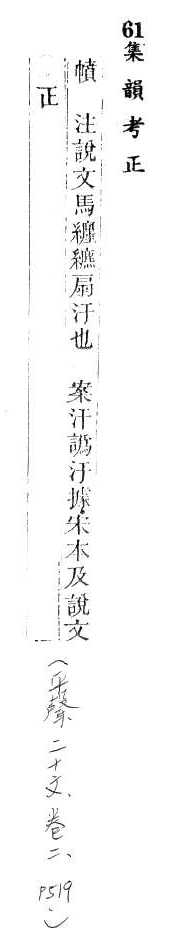 61集韻考正
幩 注說文馬纏鑣扇汙也 案汙譌汗據宋本及說文
正
(平聲二十文、卷二、P519)